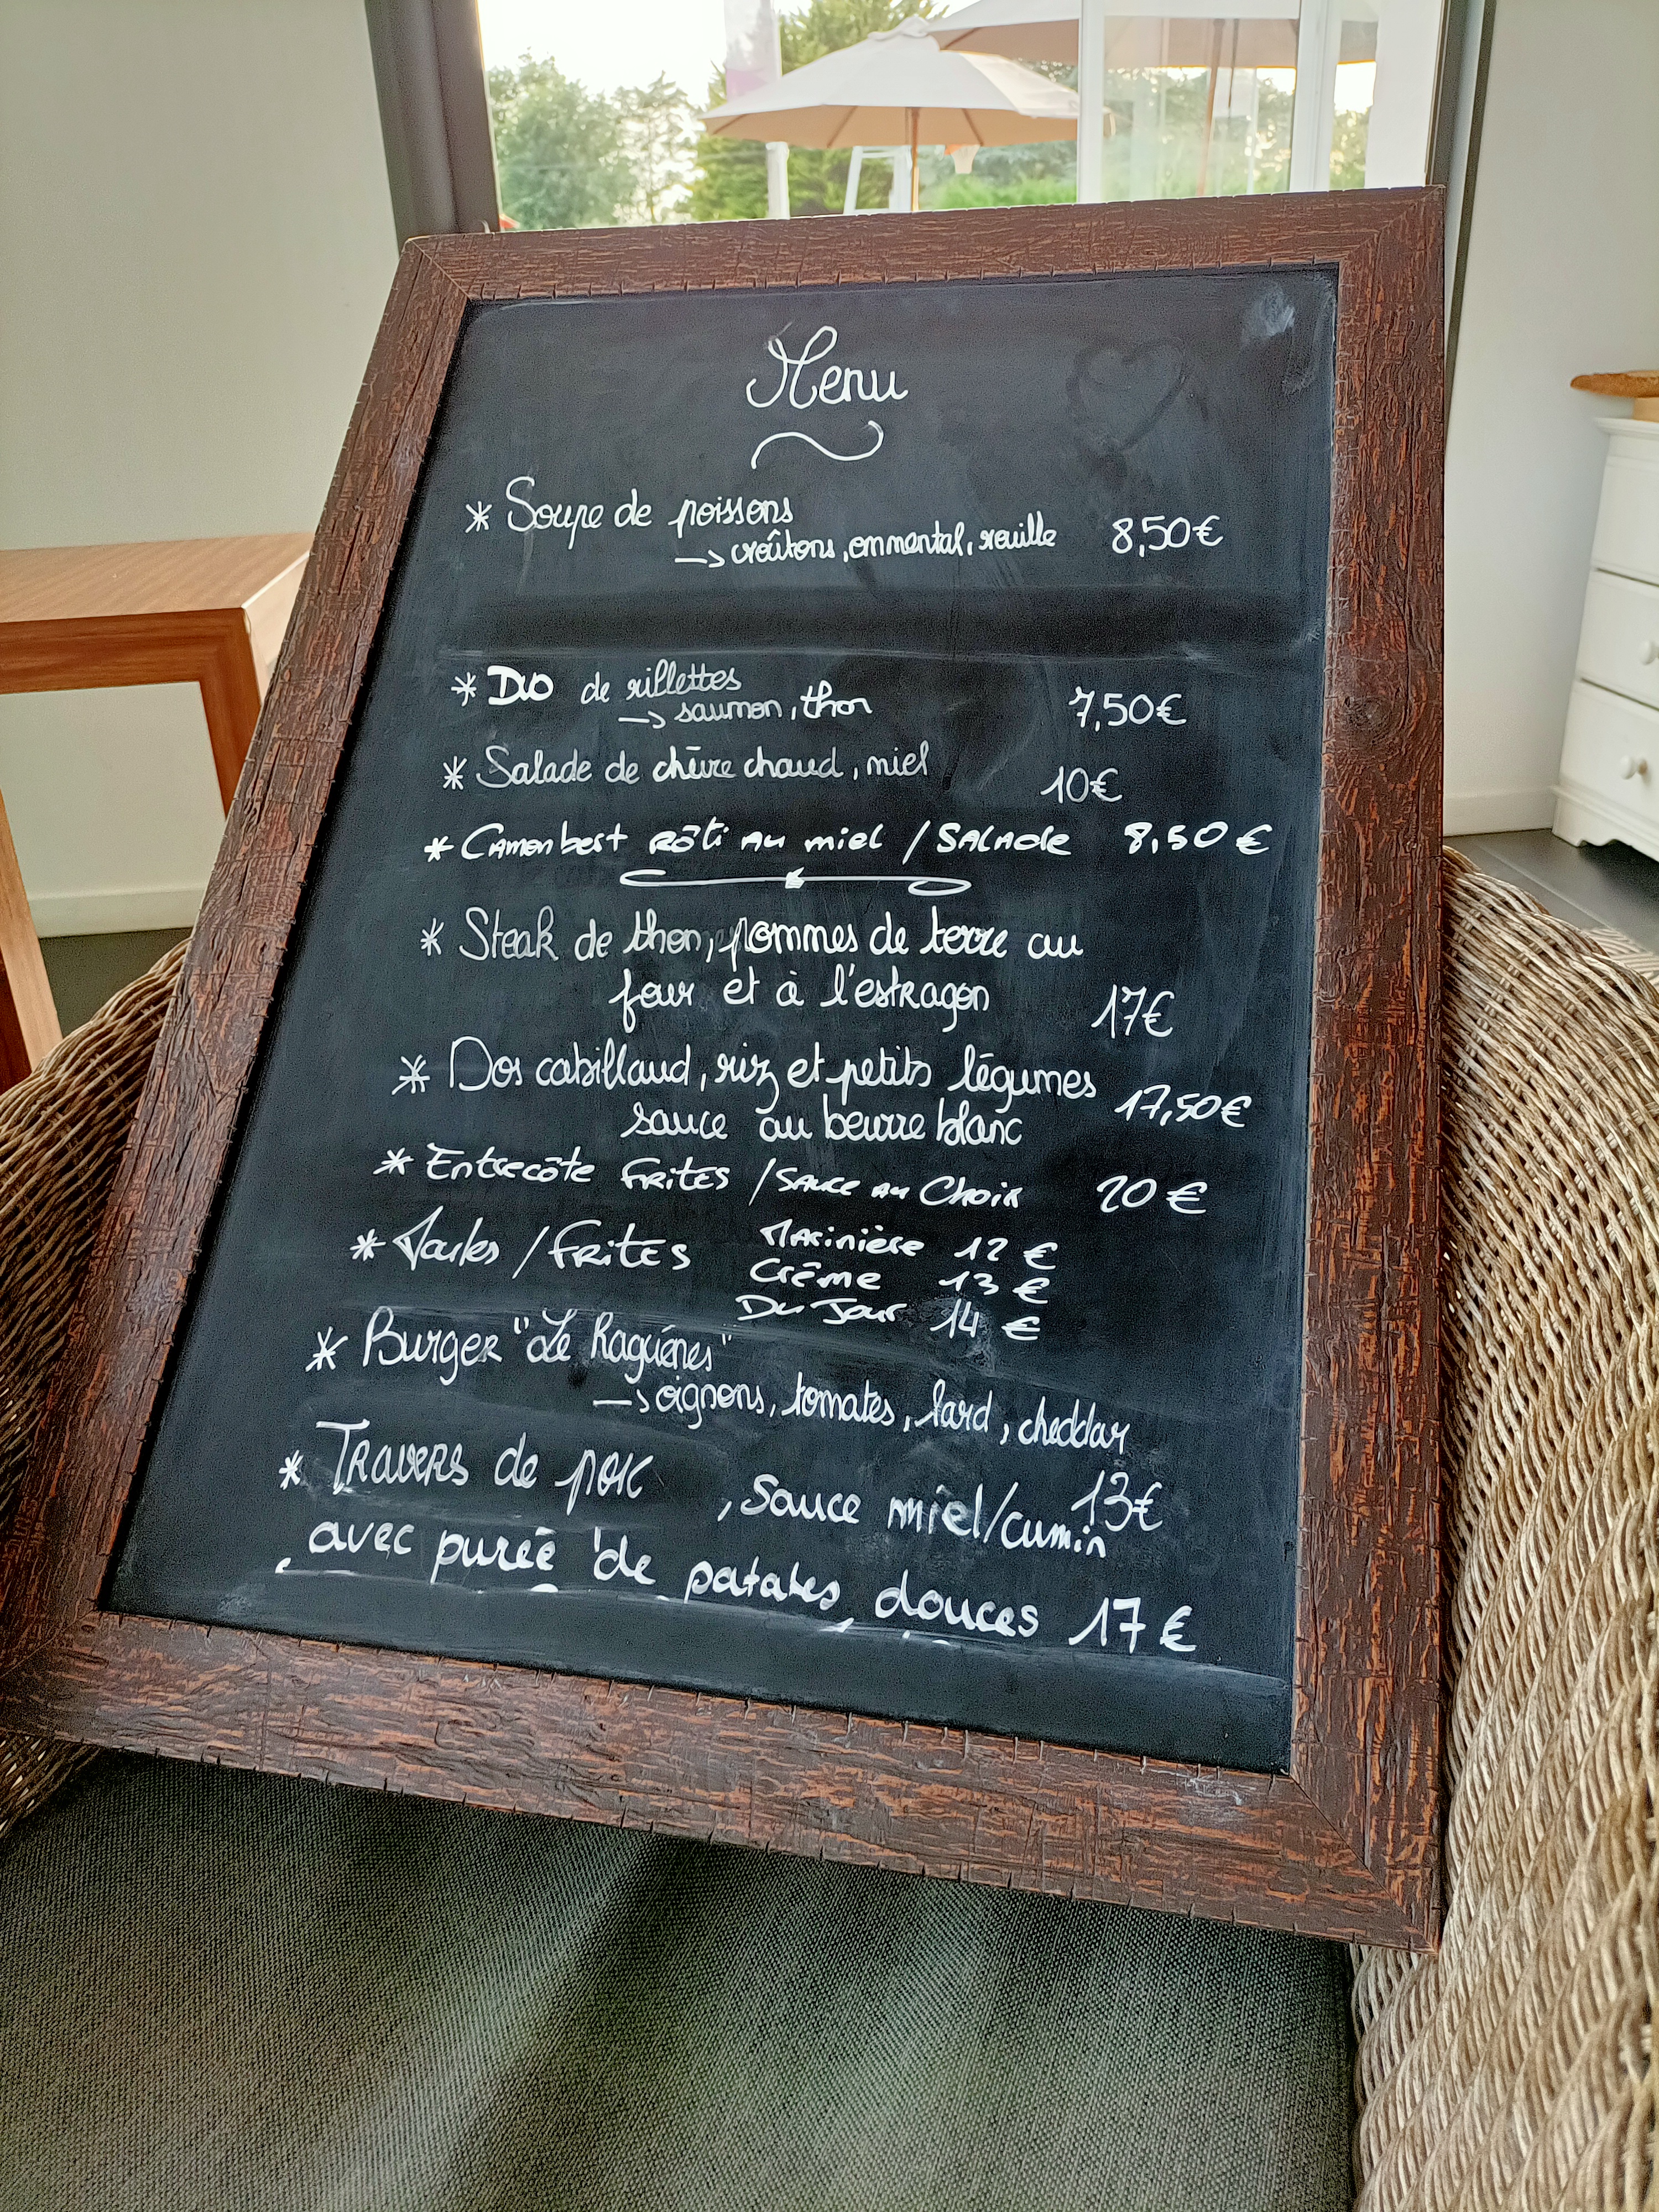 Menu
* Soupe de poissons
→ croûtons, emmental, rouille 8,50€
* Duo de rillettes
→ saumon, thon 7,50€
* Salade de chèvre chaud, miel 10€
* Camembert rôti au miel / Salade 8,50€
* Steak de thon, pommes de terre au
four et à l'estragon 17€
* Dos cabillaud, riz et petits légumes
sauce au beurre blanc 17,50€
* Entrecôte frites / sauce au choix 20€
* Moules / frites Marinière 12 €
Crème 13 €
Du Jour 14 €
* Burger "Le Raguénes"
→ oignons, tomates, lard, cheddar
13€
* Travers de porc , sauce miel/cumin
avec purée de patates douces 17€